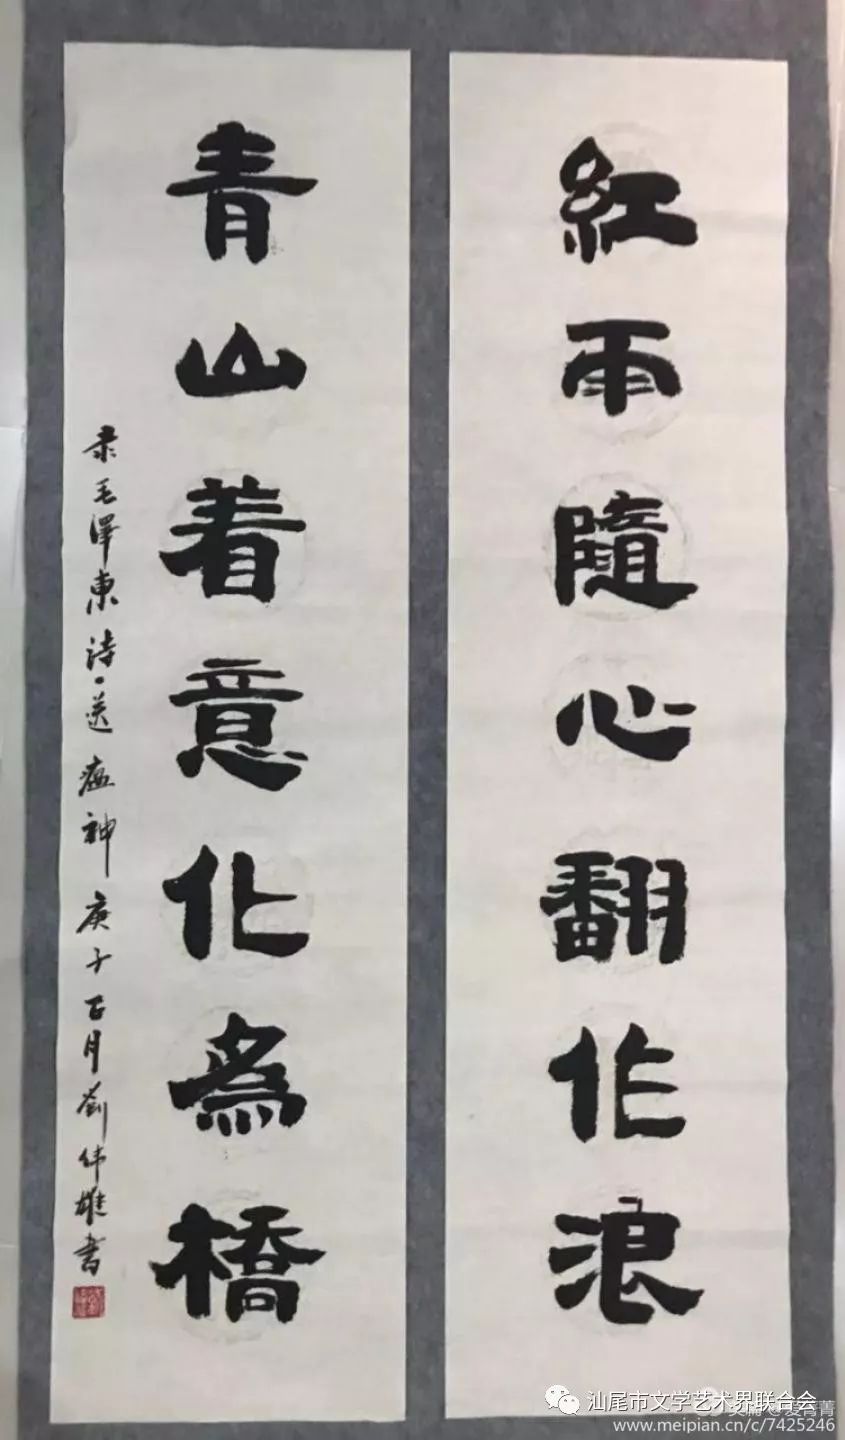 紅雨隨心翻作浪
青山着意化為橋
录毛澤東詩送瘟神庚子百月劉偉雄書
汕尾市文学艺术界联合会
美篇@爱菁菁
www.meipian.cn/c/7425246